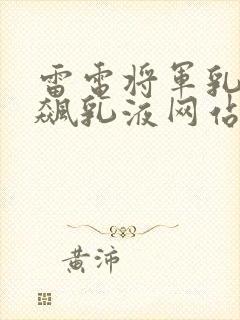 雷电将军乳
飙乳液网站
黄沛